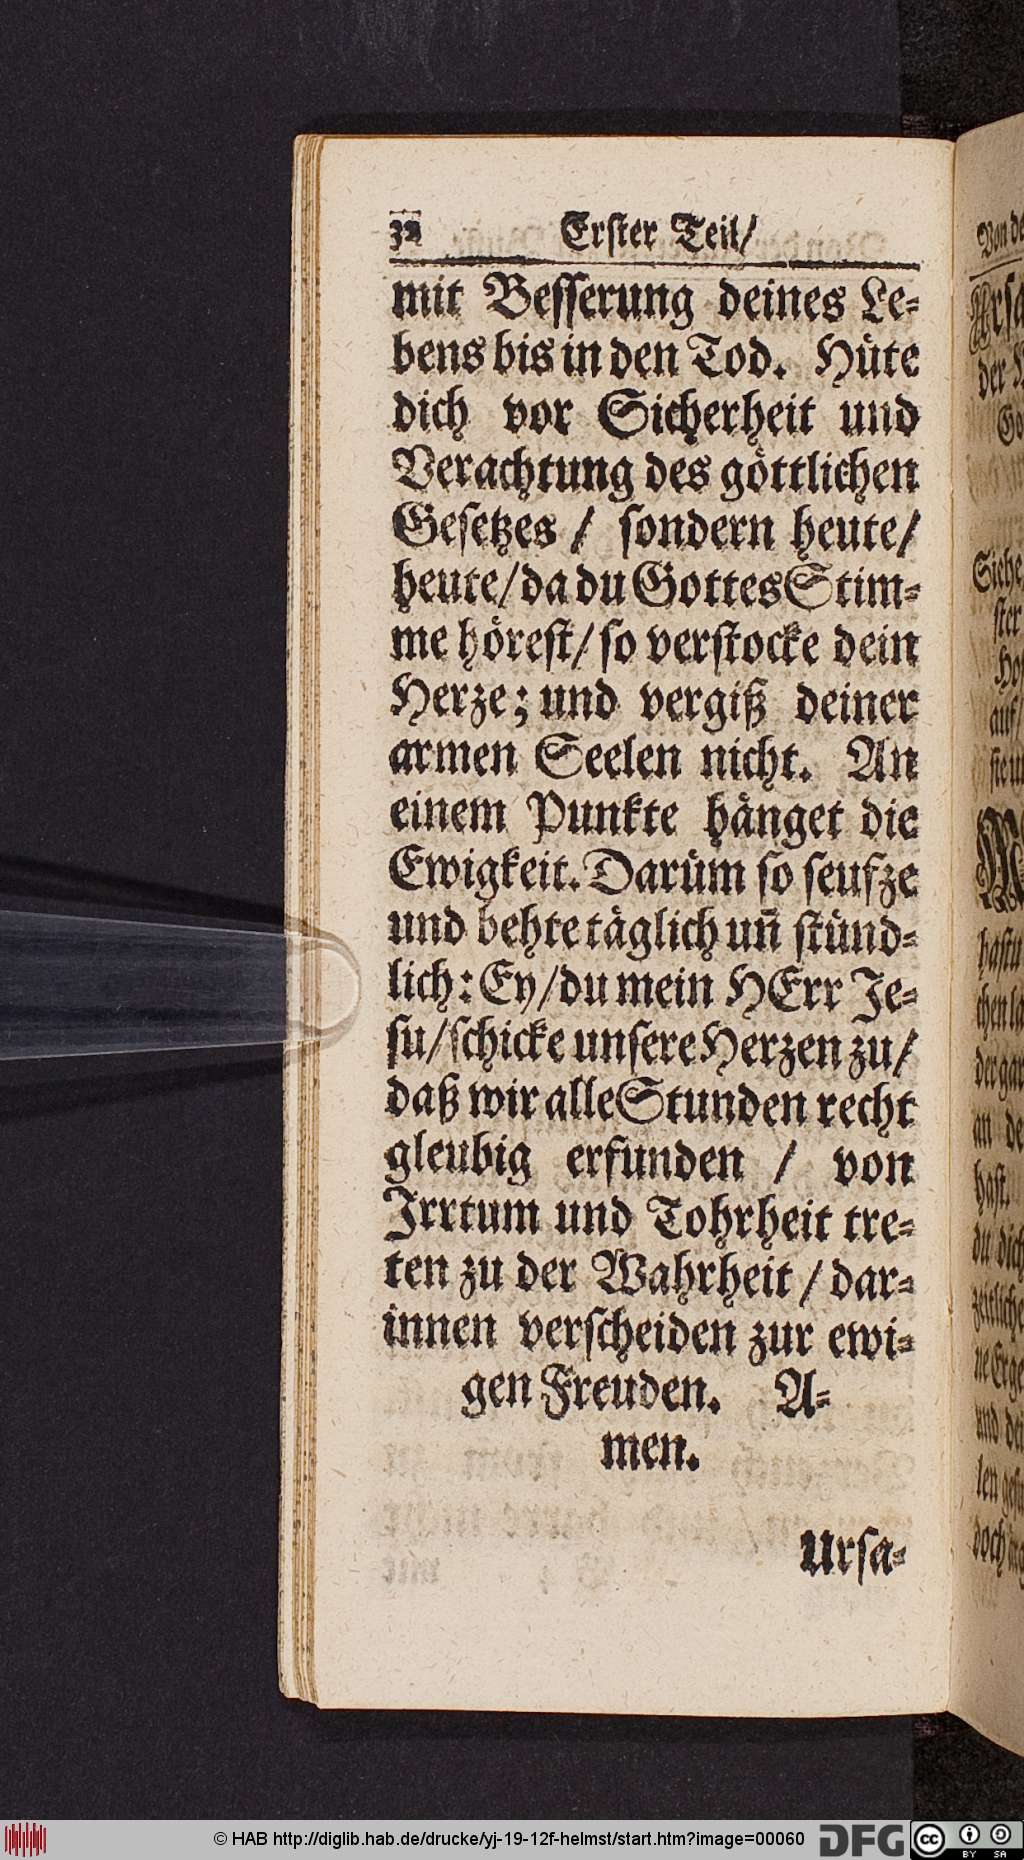 32 Erster Teil/
mit Besserung deines Le-
bens bis in den Tod. Hüte
dich vor Sicherheit und
Verachtung des göttlichen
Gesetzes / sondern heute/
heute/ da du Gottes Stim-
me hörest/ so verstocke dein
Herze; und vergiß deiner
armen Seelen nicht. An
einem Punkte hänget die
Ewigkeit. Darüm so seufze
und behte täglich uñ stünd-
lich: Ey/ du mein HErr Je-
su/ schicke unsere Herzen zu/
daß wir alle Stunden recht
gleubig erfunden / von
Irrtum und Tohrheit tre-
ten zu der Wahrheit / dar-
innen verscheiden zur ewi-
gen Freuden. A-
men.
Ursa-
Von de
Ursa
der
Go
Siehe
ster
auf/
hastu
chen la
der gar
an de
hast.
du dich
zeitliche
und dei
doch
© HAB http://diglib.hab.de/drucke/yj-19-12f-helmst/start.htm?image=00060
DFG
cc BY SA